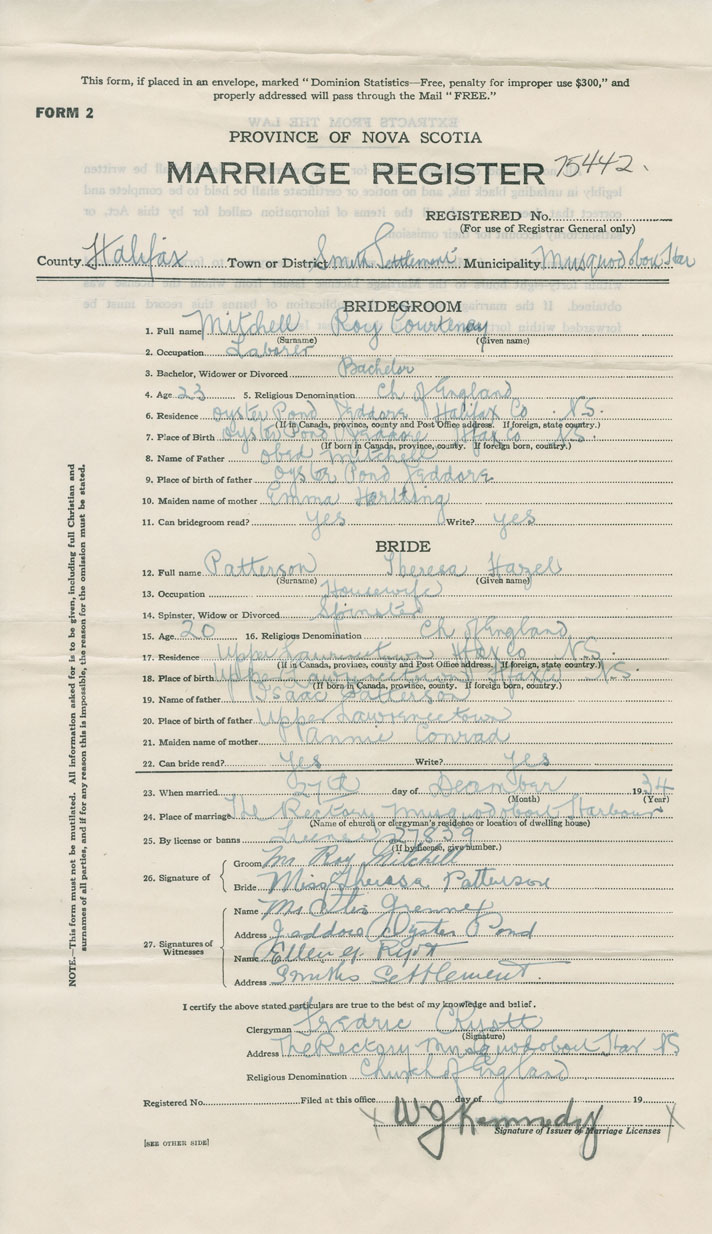 This form, if placed in an envelope, marked "Dominion Statistics—Free, penalty for improper use $300," and
properly addressed will pass through the Mail "FREE."
FORM 2
PROVINCE OF NOVA SCOTIA
MARRIAGE REGISTER 75442.
REGISTERED No.
(For use of Registrar General only)
County Halifax Town or District Smith Settlement Municipality Musquodoboit Har
BRIDEGROOM
1. Full name Mitchell Roy Courtenay
(Surname) (Given name)
2. Occupation Laborer
3. Bachelor, Widower or Divorced Bachelor
4. Age 23 5. Religious Denomination Ch of England
6. Residence Oyster Pond Jeddore Halifax Co N.S.
(If in Canada, province, county and Post Office address. If foreign, state country.)
7. Place of Birth Oyster Pond Jeddore Hax Co N.S.
(If born in Canada, province, county. If foreign born, country.)
8. Name of Father Obed Mitchell
9. Place of birth of father Oyster Pond Jeddore
10. Maiden name of mother Emma Hartling
11. Can bridegroom read? yes Write? yes
BRIDE
12. Full name Patterson Theresa Hazel
(Surname) (Given name)
13. Occupation Housewife
14. Spinster, Widow or Divorced Spinster
15. Age 20 16. Religious Denomination Ch of England
17. Residence Upper Lawrencetown Hax Co N.S.
(If in Canada, province, county and Post Office address. If foreign, state country.)
18. Place of birth Upper Lawrencetown Hax Co N.S.
(If born in Canada, province, county. If foreign born, country.)
19. Name of father Isaac Patterson
20. Place of birth of father Upper Lawrencetown
21. Maiden name of mother Annie Conrad
22. Can bride read? Yes Write? Yes
23. When married 27th day of December 1934
(Month) (Year)
24. Place of marriage The Rectory Musquodoboit Harbour
(Name of church or clergyman's residence or location of dwelling house)
25. By license or banns License 27839
(If by license, give number.)
26. Signature of
Groom Mr Roy Mitchell
Bride Miss Theresa Patterson
27. Signatures of Witnesses
Name Mr
Address Jeddore Oyster Pond
Name Ellen
Address Smiths Settlement.
I certify the above stated particulars are true to the best of my knowledge and belief.
Clergyman Fredric
(Signature)
Address The Rectory Musquodoboit Har NS
Religious Denomination Church of England
Registered No. Filed at this office day of 19
X W J Kennedy X
Signature of Issuer of Marriage Licenses
[SEE OTHER SIDE]
NOTE.—This form must not be mutilated. All information asked for is to be given, including full Christian and
surnames of all parties, and if for any reason this is impossible, the reason for the omission must be stated.